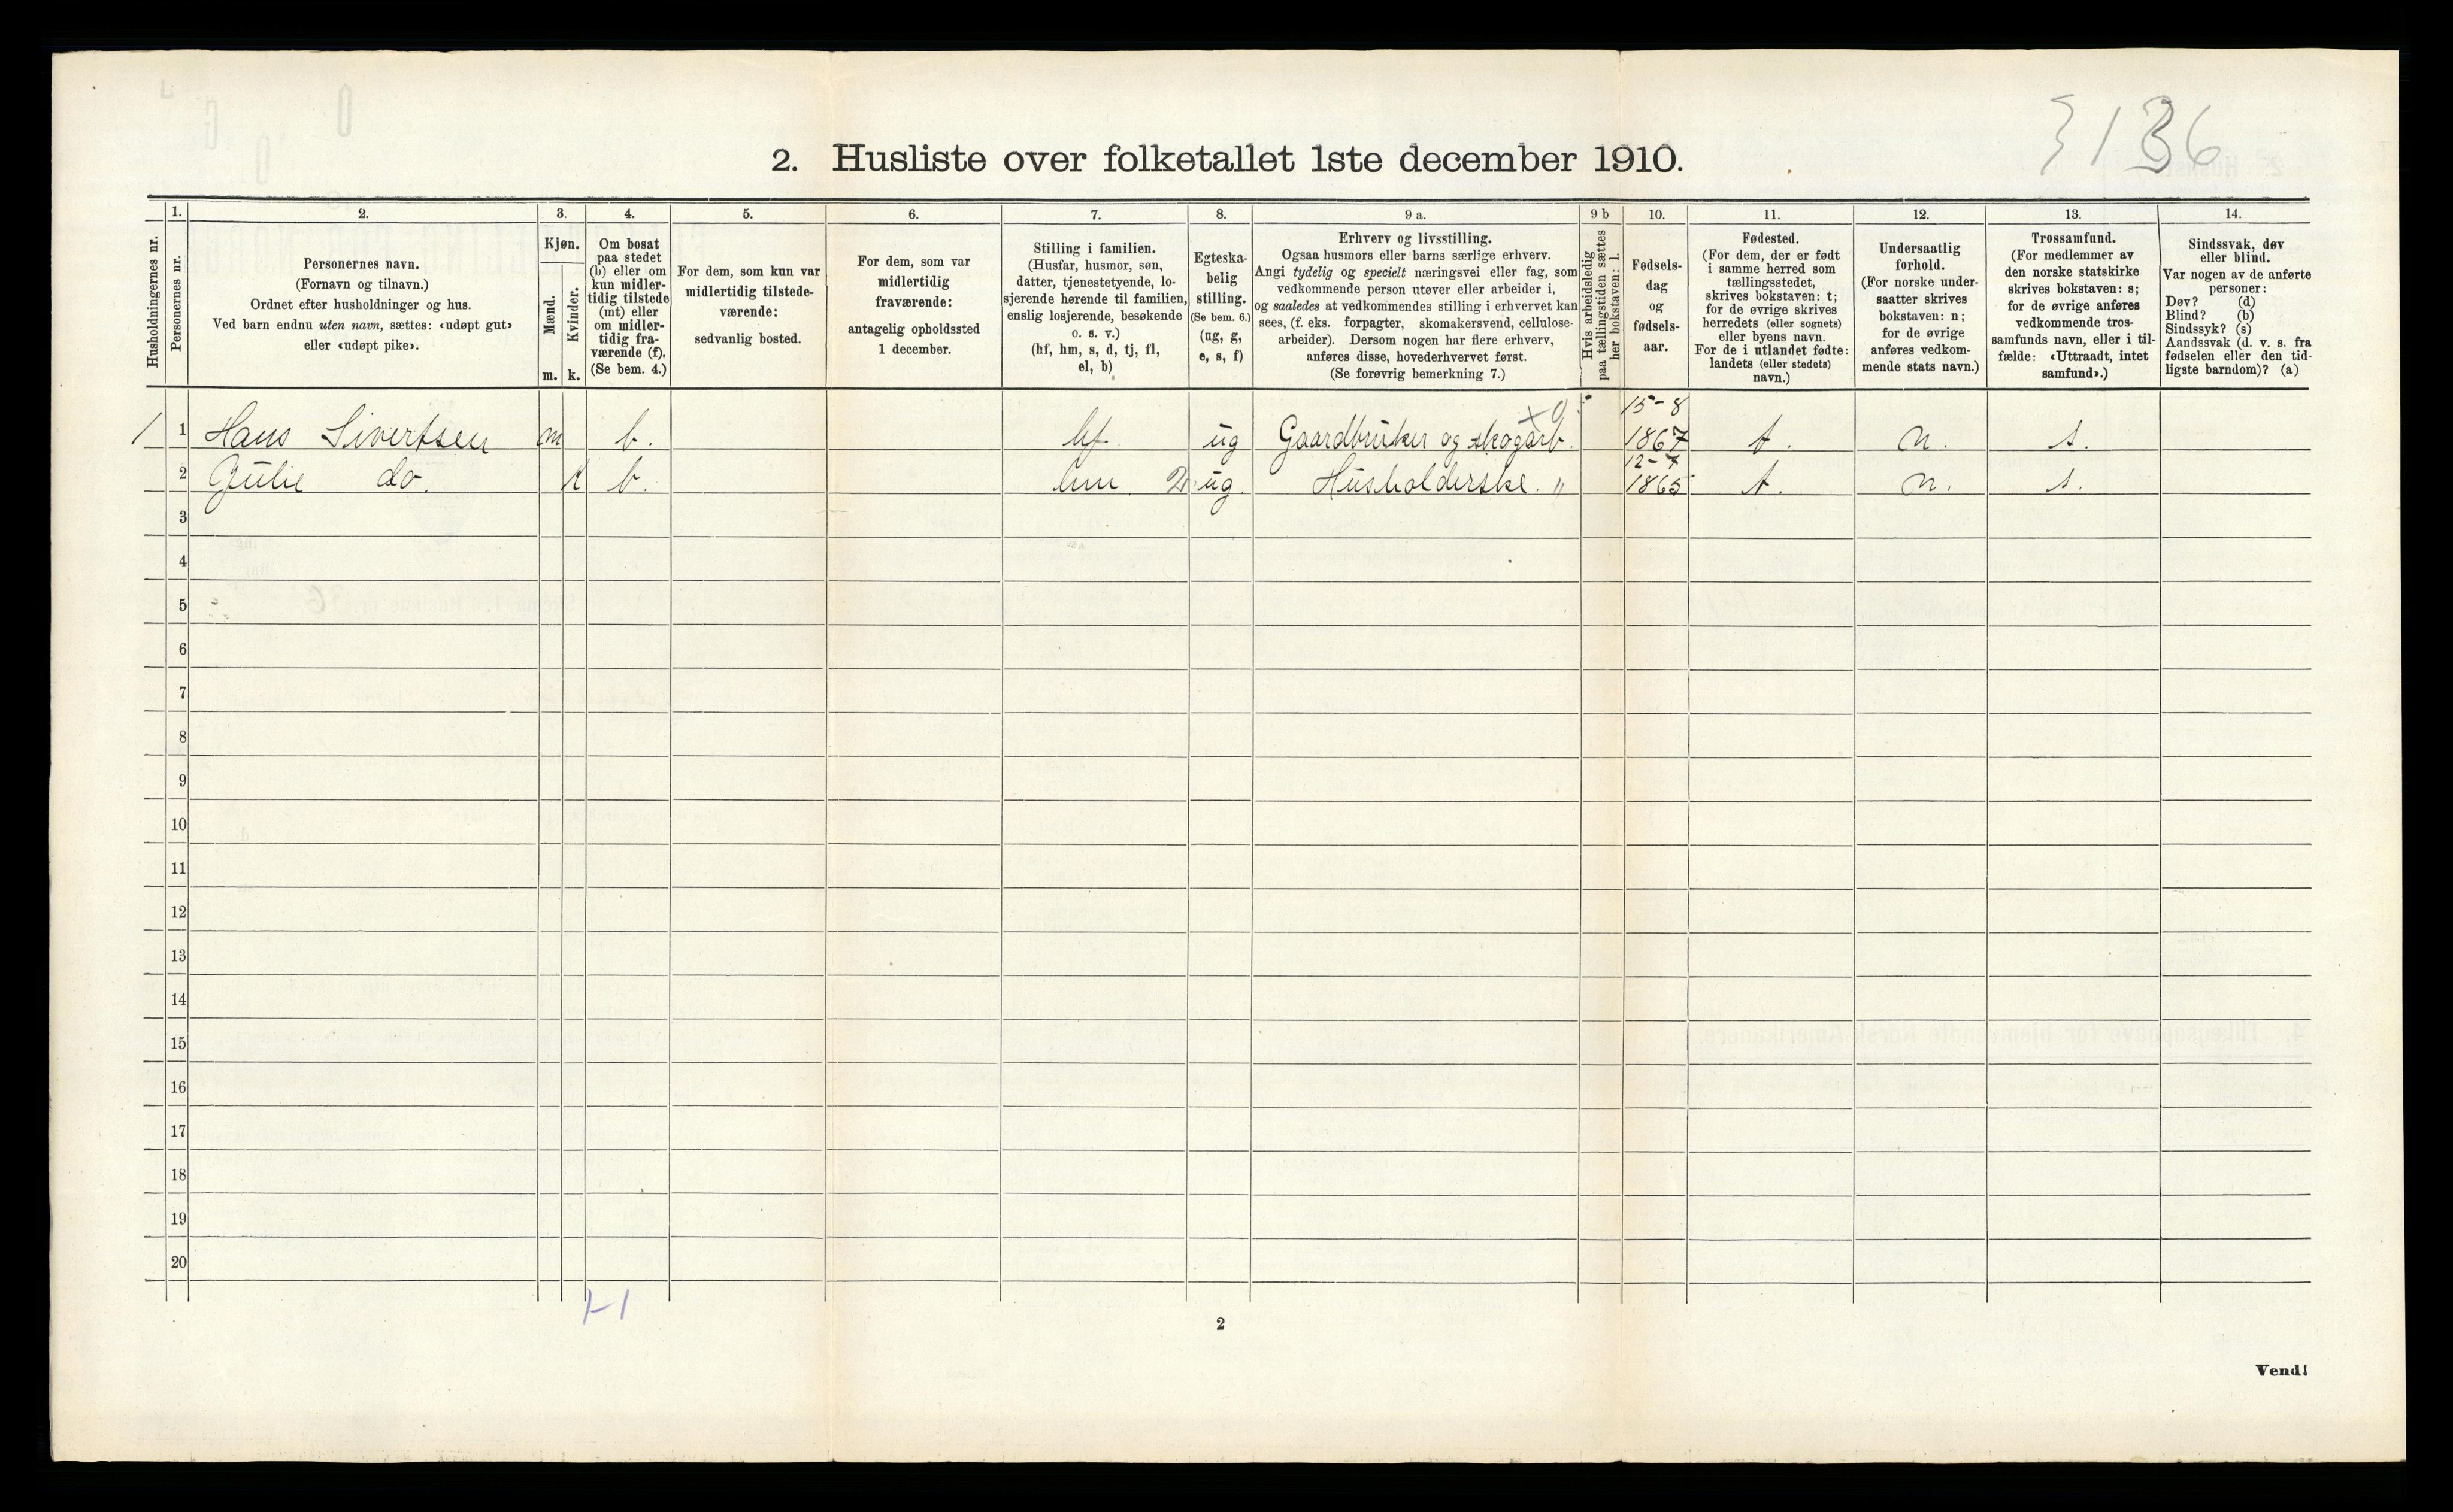 3136
2. Husliste over folketallet 1ste december 1910.
Husholdningernes nr.
1. 2. 3. 4. 5. 6. 7. 8. 9 a. 9 b 10. 11. 12. 13. 14.
Personernes nr.
Personernes navn.
(Fornavn og tilnavn.)
Ordnet efter husholdninger og hus.
Ved barn endnu uten navn, sættes: «udøpt gut»
eller «udøpt pike».
Kjøn.
Mænd.
Kvinder.
m. k.
Om bosat
paa stedet
(b) eller om
kun midler-
tidig tilstede
(mt) eller
om midler-
tidig fra-
værende (f).
(Se bem. 4.)
For dem, som kun var
midlertidig tilstede-
værende:
sedvanlig bosted.
For dem, som var
midlertidig
fraværende:
antagelig opholdssted
1 december.
Stilling i familien.
(Husfar, husmor, søn,
datter, tjenestetyende, lo-
sjerende hørende til familien,
enslig losjerende, besøkende
o. s. v.)
(hf, hm, s, d, tj, fl,
el, b)
Egteska-
belig
stilling.
(Se bem. 6.)
(ug, g,
e, s, f)
Erhverv og livsstilling.
Ogsaa husmors eller barns særlige erhverv.
Angi tydelig og specielt næringsvei eller fag, som
vedkommende person utøver eller arbeider i,
og saaledes at vedkommendes stilling i erhvervet kan
sees, (f. eks. forpagter, skomakersvend, cellulose-
arbeider). Dersom nogen har flere erhverv,
anføres disse, hovederhvervet først.
(Se forøvrig bemerkning 7.)
Hvis arbeidsledig
paa tællingstiden sættes
her bokstaven: l.
Fødsels-
dag
og
fødsels-
aar.
Fødested.
(For dem, der er født
i samme herred som
tællingsstedet,
skrives bokstaven: t;
for de øvrige skrives
herredets (eller sognets)
eller byens navn.
For de i utlandet fødte:
landets (eller stedets)
navn.)
Undersaatlig
forhold.
(For norske under-
saatter skrives
bokstaven: n;
for de øvrige
anføres vedkom-
mende stats navn.)
Trossamfund.
(For medlemmer av
den norske statskirke
skrives bokstaven: s;
for de øvrige anføres
vedkommende tros-
samfunds navn, eller i til-
fælde: «Uttraadt, intet
samfund».)
Sindssvak, døv
eller blind.
Var nogen av de anførte
personer:
Døv? (d)
Blind? (b)
Sindssyk? (s)
Aandssvak (d. v. s. fra
fødselen eller den tid-
ligste barndom)? (a)
15-8
1 1 Hans Sivertsen m b. hf. ug Gaardbruker og skogarb. 1867 t. n. s.
12-7
2 Julie do. k b. hm 2 ug. Husholderske. " 1865 t. n. s.
3
4
5
6
7
8
9
10
11
12
13
14
15
16
17
18
19
20
1-1
2
Vend!